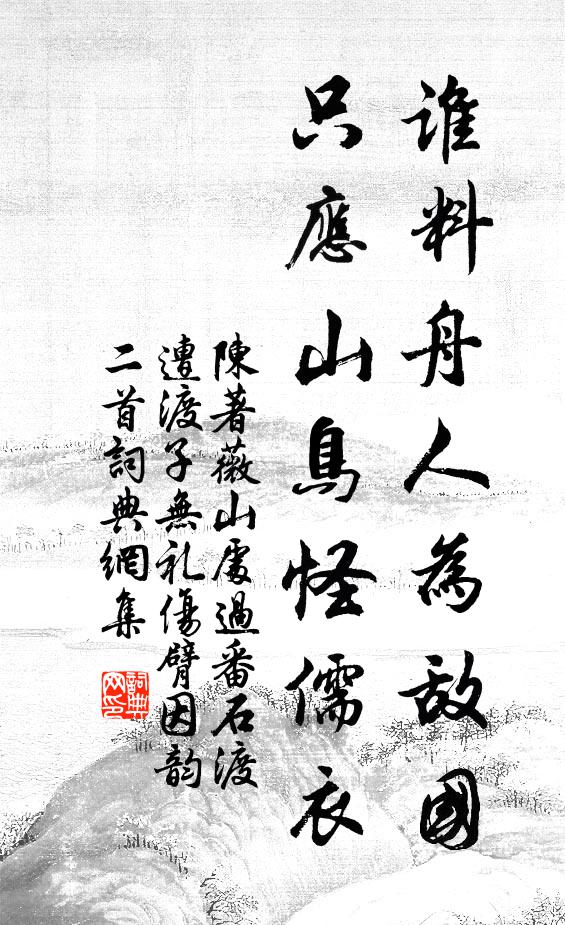 誰料舟人為敵國
只應山鳥怪儒衣
陳著薇山處過番石渡
遭渡子無礼傷臂因韵
二首詞典網集
詞典網印